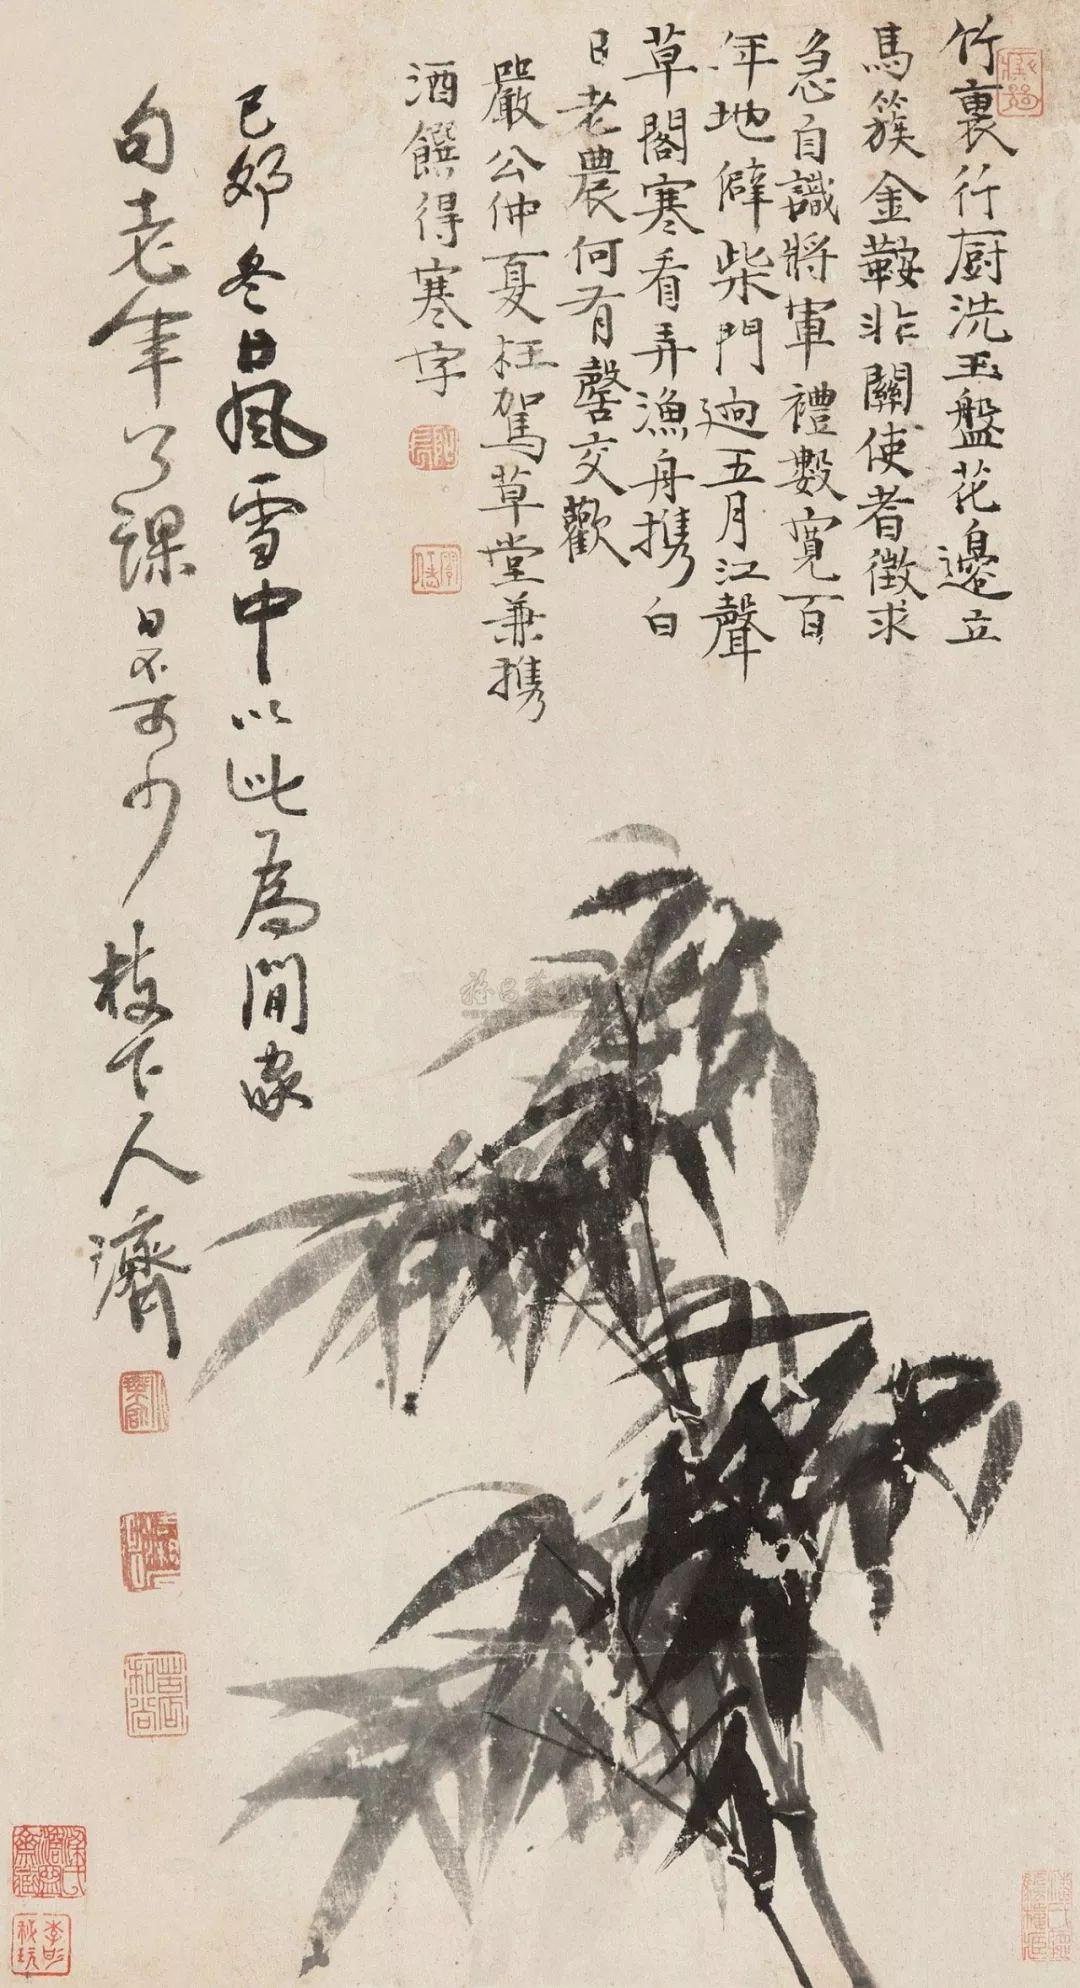 竹裏行厨洗玉盤花邊立
馬簇金鞍非關使者徵求
急自識將軍禮數寬百
年地僻柴門迥五月江聲
草閣寒看弄漁舟携白
日老農何有罄交歡
嚴公仲夏枉駕草堂兼携
酒饌得寒字
己卯冬日風雪中以此為閒
老年課不可少枝下人濟
苦瓜和尚